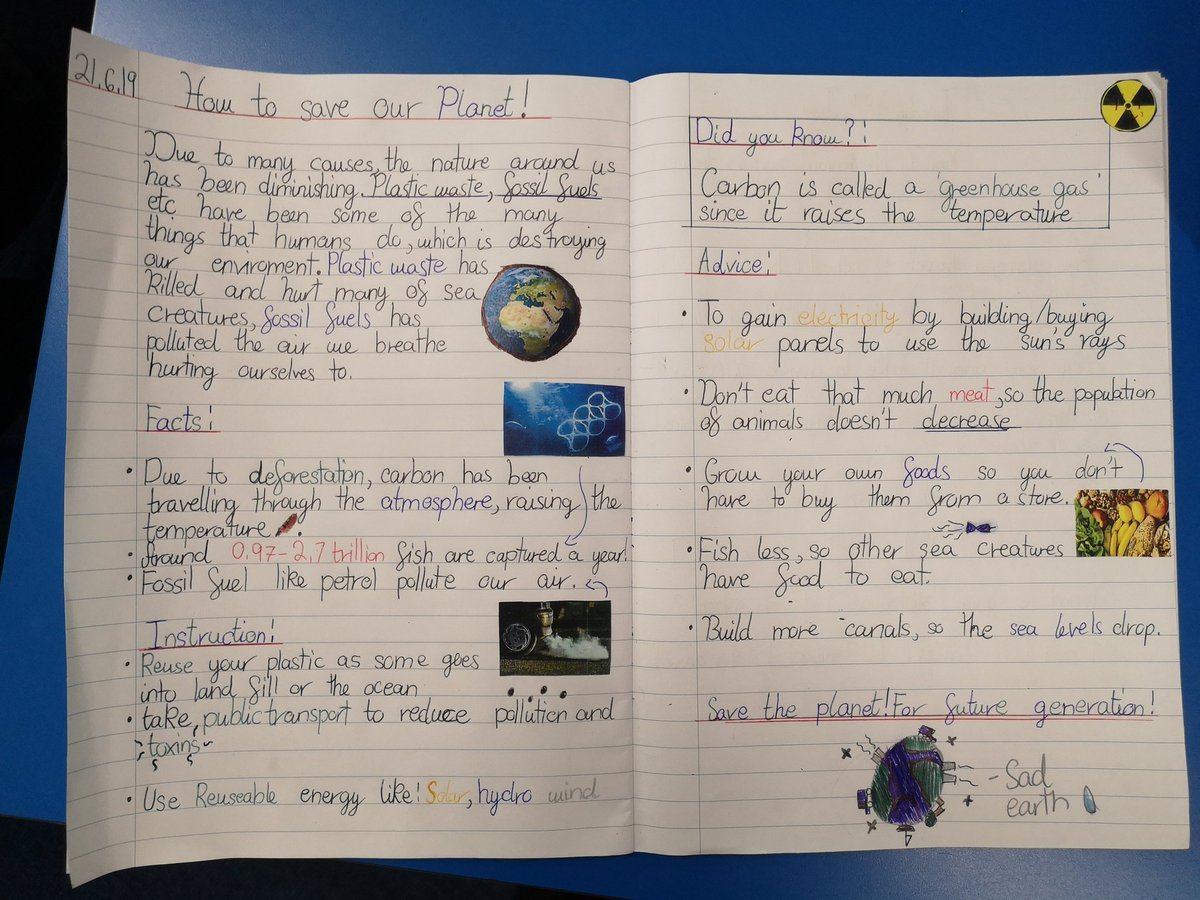 21.6.19
How to save our Planet!
Due to many causes, the nature around us
has been diminishing. Plastic waste, fossil fuels
etc have been some of the many
things that humans do, which is destroying
our enviroment. Plastic waste has
killed and hurt many of sea
creatures, fossil fuels has
polluted the air we breathe
hurting ourselves to.
Facts:
• Due to deforestation, carbon has been
travelling through the atmosphere, raising the
temperature.
• Around 0.97-2.7 trillion fish are captured a year!
• Fossil fuel like petrol pollute our air.
Instruction:
• Reuse your plastic as some goes
into land fill or the ocean
• take, public transport to reduce pollution and
toxins
• Use Reuseable energy like: Solar, hydro wind
Did you know?:
Carbon is called a 'greenhouse gas'
since it raises the temperature
Advice:
• To gain electricity by building/buying
solar panels to use the sun's rays
• Don't eat that much meat, so the population
of animals doesn't decrease
• Grow your own foods so you don't
have to buy them from a store.
• Fish less, so other sea creatures
have food to eat.
• Build more canals, so the sea levels drop.
Save the planet! For future generation!
- Sad
earth